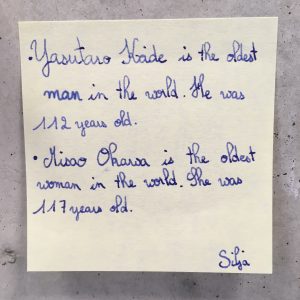 • Yasutaro Koide is the oldest
man in the world. He was
112 years old.
• Misao Okawa is the oldest
woman in the world. She was
117 years old.
Silja